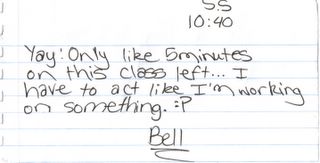 S.S
10:40
Yay! Only like 5minutes
on this class left... I
have to act like I'm working
on something. :P
Bell